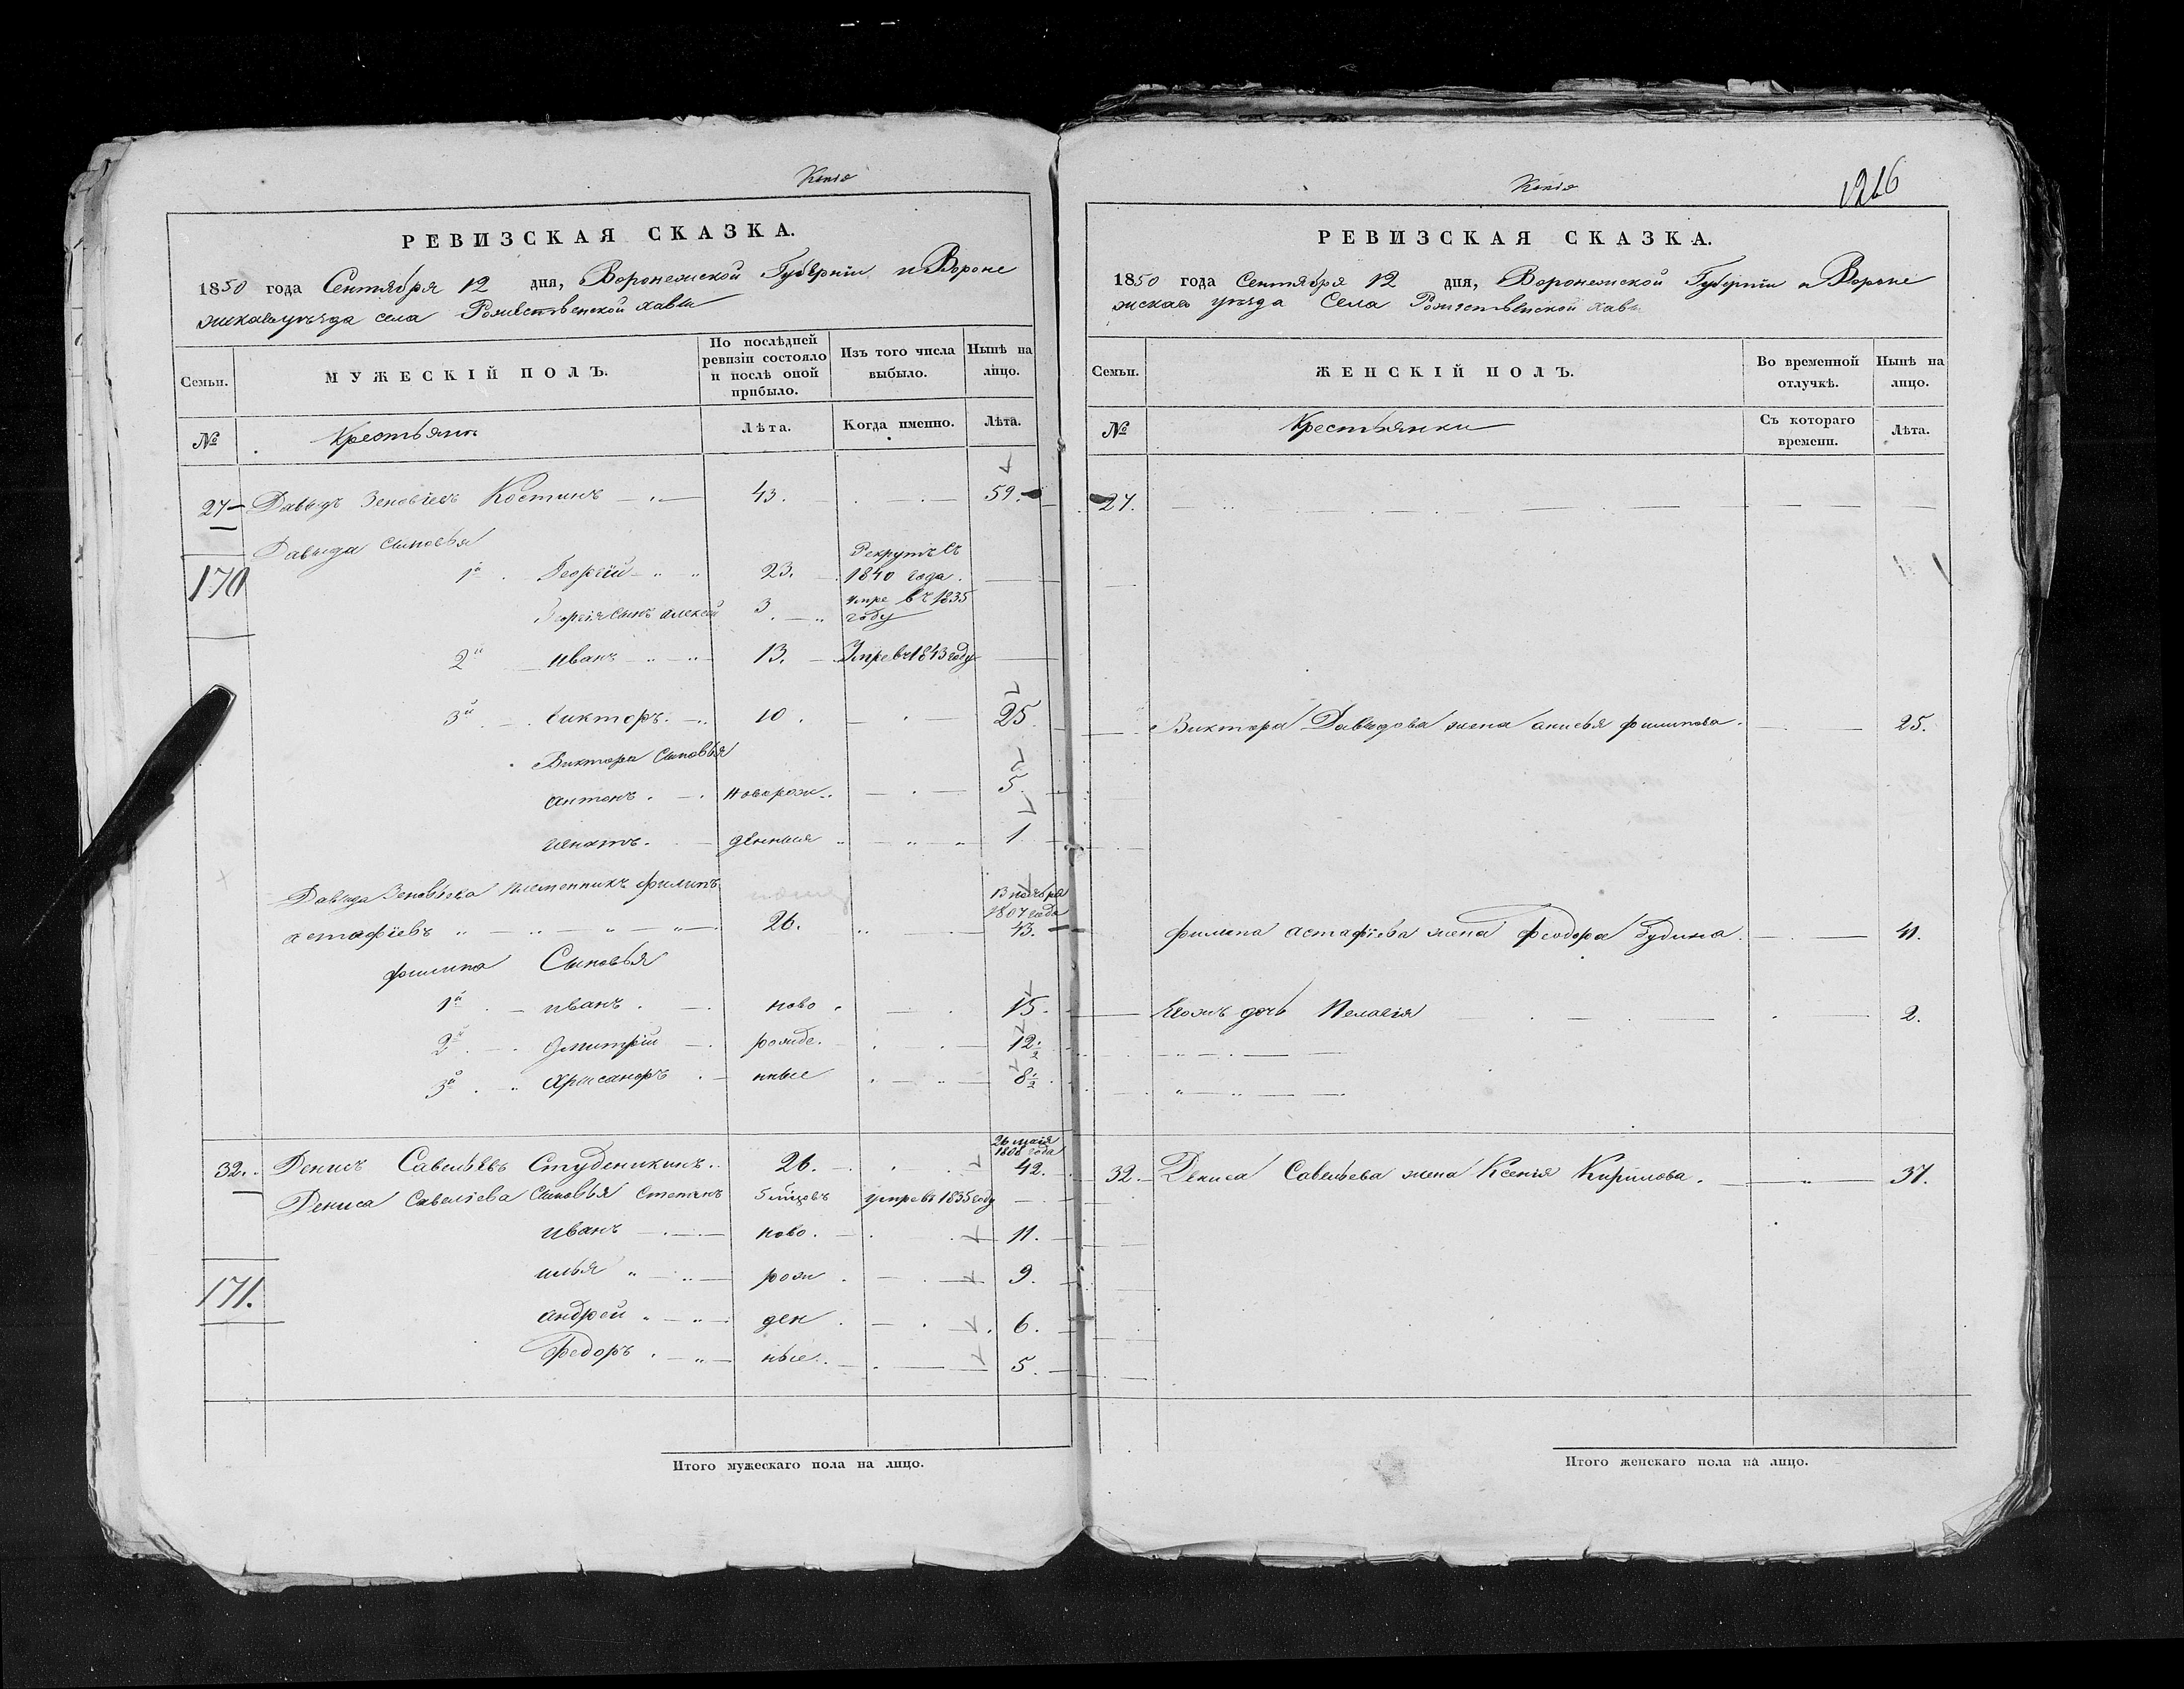 Копiя
РЕВИЗСКАЯ СКАЗКА.
1850 года Сентября 12 дня, Воронежской Губернiи и Вороне
жскагo уѣзда села Рожественской хавы
Семьи. МУЖЕСКІЙ ПОЛЪ. По послѣдней ревизіи состояло и послѣ оной прибыло. Изъ того числа выбыло. Нынѣ на лицо.
№ Крестьяни Лѣта. Когда именно. Лѣта.
27 Давыдъ Зеновiевъ Костинъ 43. 59.
Давыда Сыновья
170 1й Георгiй 23. Рекрутъ съ 1840 года.
Георгiя сынъ алексей 3 умре въ 1835 году
2й иванъ 13. Умре въ 1843 году
3й викторъ. 10. 25
Виктора Сыновья
антонъ. Новорож. 5.
игнатъ. денныя 1
Давыда Зеновьева племенникъ филипъ 13 ноября 1807 года
астафiевъ 26. 43.
филипа Сыновья
1й иванъ. ново. 15.
2й дмитрiй рожде. 12 1/2
3й Хрисанфъ. нные 8 1/2
26 маiя 1808 года
32. Денисъ Савельевъ Студеникинъ. 26. 42.
Дениса Савелiева Сыновья Степанъ 5 мцовъ умре въ 1835 году
иванъ ново. 11.
илья рож 9.
171. андрей ден 6.
Федоръ. ные. 5.
Итого мужескаго пола на лицо.
Копiя
1216
РЕВИЗСКАЯ СКАЗКА.
1850 года Сентября 12 дня, Воронежской Губернiи и Вороне
жскаго уѣзда Села Рожественской хавы
Семьи. ЖЕНСКІЙ ПОЛЪ. Во временной отлучкѣ. Нынѣ на лицо.
№ Крестьянки Съ котораго времени. Лѣта.
27.
Виктора Давыдова жена анисья филипова. 25.
филипа астафiева жена Феодора Гудина. 41.
Егожъ дочь Пелагiя 2.
32. Дениса Савельева жена Ксенiя Кирилова. 37.
Итого женскаго пола на лицо.